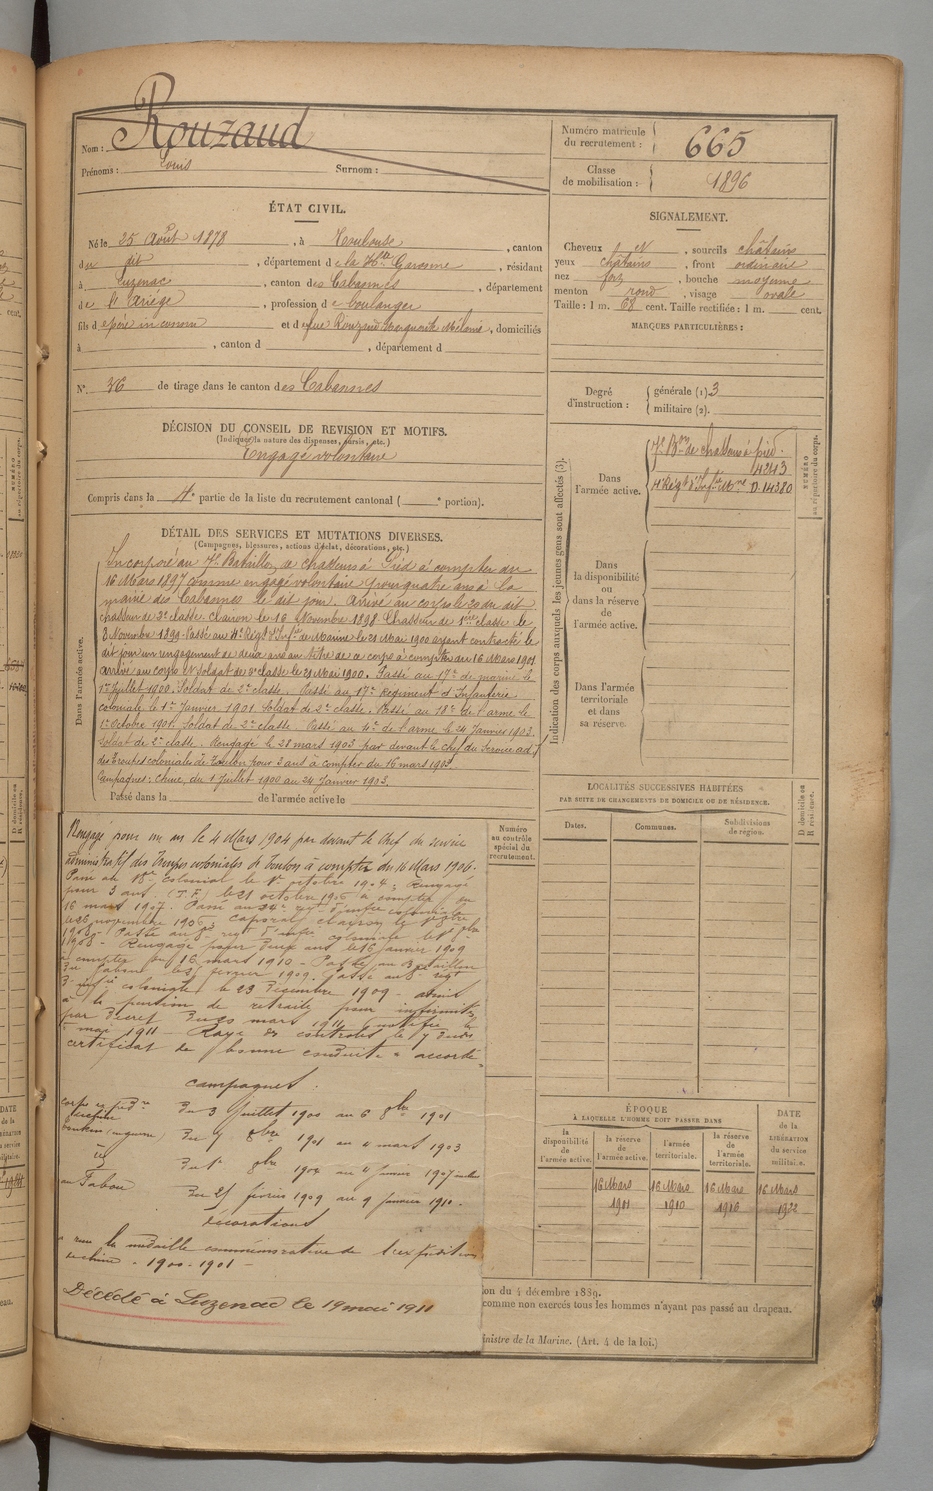 Nom : Rouzaud
Prénoms : Louis Surnom :
Numéro matricule du recrutement : 665
Classe de mobilisation : 1896
ÉTAT CIVIL.
Né le 25 Août 1878, à Toulouse, canton
du dit, département de la Hte Garonne, résidant
à Luzenac, canton des Cabannes, département
de l'Ariège, profession de boulanger
fils de père inconnu et de feue Rouzaud Marguerite Mélanie, domiciliés
à , canton d , département d
N° 36 de tirage dans le canton des Cabannes
SIGNALEMENT.
Cheveux , sourcils châtains
yeux châtains, front ordinaire
nez fort, bouche moyenne
menton rond, visage ovale
Taille : 1 m. 68 cent. Taille rectifiée : 1 m. cent.
MARQUES PARTICULIÈRES :
Degré d'instruction : générale (1) 3
militaire (2).
DÉCISION DU CONSEIL DE REVISION ET MOTIFS.
(Indiquer la nature des dispenses, sursis, etc.)
Engagé volontaire
Compris dans la 4e partie de la liste du recrutement cantonal ( e portion).
DÉTAIL DES SERVICES ET MUTATIONS DIVERSES.
(Campagnes, blessures, actions d'éclat, décorations, etc.)
Dans l'armée active.
Incorporé au 7e Bataillon de chasseurs à Pied à compter du
16 Mars 1897 comme engagé volontaire pour quatre ans à la
mairie des Cabannes le dit jour. Arrivé au corps le 20 du dit
chasseur de 2e classe. Clairon le 16 Novembre 1898. Chasseur de 1ère classe le
3 Novembre 1899. Passé au 4e Régt d'Infie de Marine le 21 Mai 1900 ayant contracté le
dit jour un engagement de deux ans au titre de ce corps à compter du 16 Mars 1901
arrivé au corps et soldat de 2e classe le 21 Mai 1900. Passé au 17e de marine le
1er Juillet 1900. Soldat de 2e classe. Passé au 17e Régiment d'Infanterie
coloniale le 1er Janvier 1901. Soldat de 2e classe. Passé au 18e de l'arme le
1er Octobre 1901. Soldat de 2e classe. Passé au 4e de l'arme le 24 Janvier 1903.
Soldat de 2e classe. Rengagé le 28 mars 1903 par devant le chef du Service adf
des troupes coloniales de Toulon pour 3 ans à compter du 16 mars 1903.
Campagnes : Chine, du 1 Juillet 1900 au 24 Janvier 1903.
Passé dans la de l'armée active le
Rengagé pour un an le 4 Mars 1904 par devant le Chef du service
administratif des Troupes coloniales de Toulon à compter du 16 Mars 1906.
Passé au 18e colonial le 1er octobre 1904; Rengagé
pour 3 ans (T.F.) le 21 octobre 1906 à compter du
16 mars 1907. Passé au 24e regt d'infie coloniale
le 26 novembre 1906, caporal clairon le
1908 - Passé au 8e regt d'infie coloniale le
1908 - Rengagé pour deux ans le 16 janvier 1909
à compter du 16 mars 1910 - Passé au Bataillon
du Gabon le février 1909. Passé au 8e regt
d'infie coloniale le 23 Décembre 1909 - admis
à la pension de retraite pour infirmités
par décret du 20 mars 1911, notifié le
mai 1911 - Rayé des contrôles le 7 dudit
certificat de bonne conduite "accordé"
campagnes.
Du 3 Juillet 1900 au 6 8bre 1901
Du 7 8bre 1901 au 4 mars 1903
Du 1er 8bre 1904 au 4 janvier 1907
au Gabon Du 25 février 1909 au 9 Janvier 1910.
décorations
a reçu la médaille commémorative de l'expédition
de chine - 1900-1901 -
Décédé à Luzenac le 19 mai 1911
Indication des corps auxquels les jeunes gens sont affectés (3).
Dans l'armée active.
7e Bon de chasseurs à pied.
4243
4e Régt d'Infie Mne D. 14380
NUMÉRO au répertoire du corps.
Dans la disponibilité ou dans la réserve de l'armée active.
Dans l'armée territoriale et dans sa réserve.
LOCALITÉS SUCCESSIVES HABITÉES
PAR SUITE DE CHANGEMENTS DE DOMICILE OU DE RÉSIDENCE.
Numéro au contrôle spécial du recrutement.
Dates. Communes. Subdivisions de région. D domicile ou R résidence.
ÉPOQUE
À LAQUELLE L'HOMME DOIT PASSER DANS
DATE de la LIBÉRATION du service militaire.
la disponibilité de l'armée active. la réserve de l'armée active. l'armée territoriale. la réserve de l'armée territoriale.
16 Mars 16 Mars 16 Mars 16 Mars
1901 1910 1916 1922
on du 4 décembre 1889.
comme non exercés tous les hommes n'ayant pas passé au drapeau.
nistre de la Marine. (Art. 4 de la loi.)